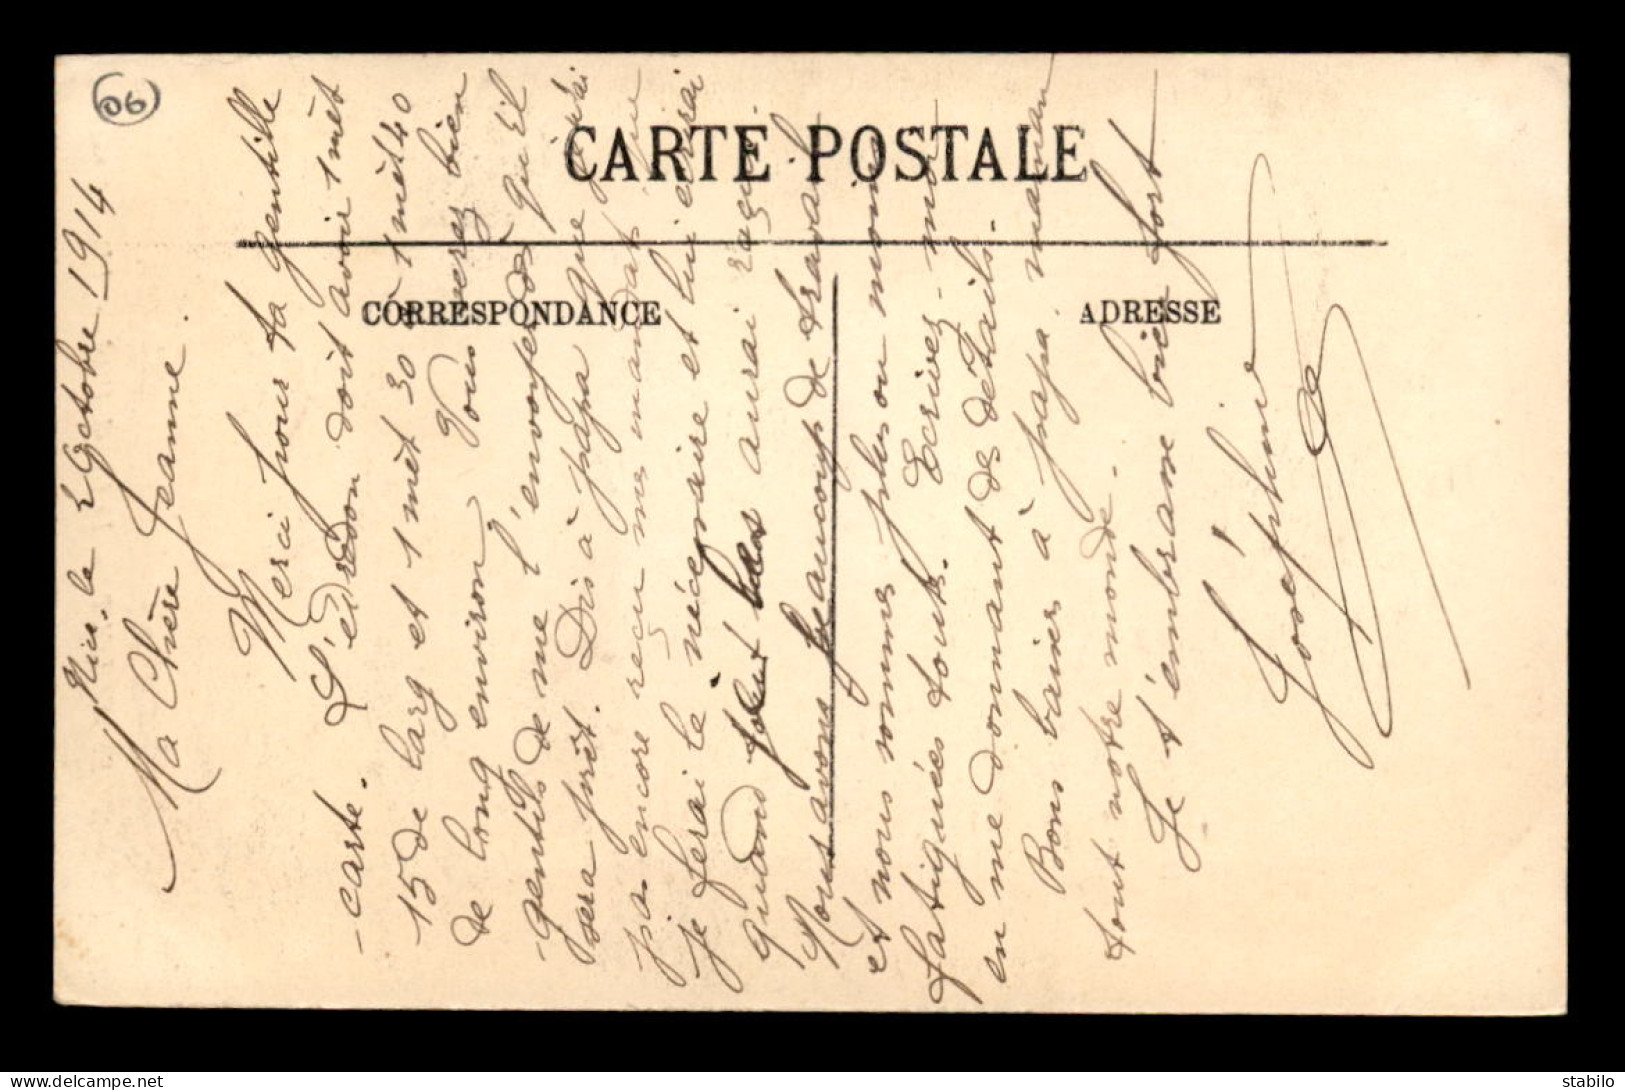 06
CARTE POSTALE
CORRESPONDANCE
ADRESSE
Nice le 2 Octobre 1914
Ma Chère Jeanne.
Merci pour ta gentille
-carte. L'édredon doit avoir 1 mèt
15 de larg et 1 mèt 30 à 1 mèt 40
de long environ. Vous serez bien
gentils de me l'envoyer dès qu'il
sera prêt. Dis à papa que j'ai
pas encore reçu mes mandats que
je ferai le nécessaire et lui écrirai
quand j'aurai reçu.
Nous avons beaucoup de travail
et nous sommes plus ou moins
fatiguées toutes. Ecrivez-moi
en me donnant des détails.
Bons baisers à papa, maman
tout notre monde.
Je t'embrasse bien fort
Joséphine
delcampe.net
stabilo